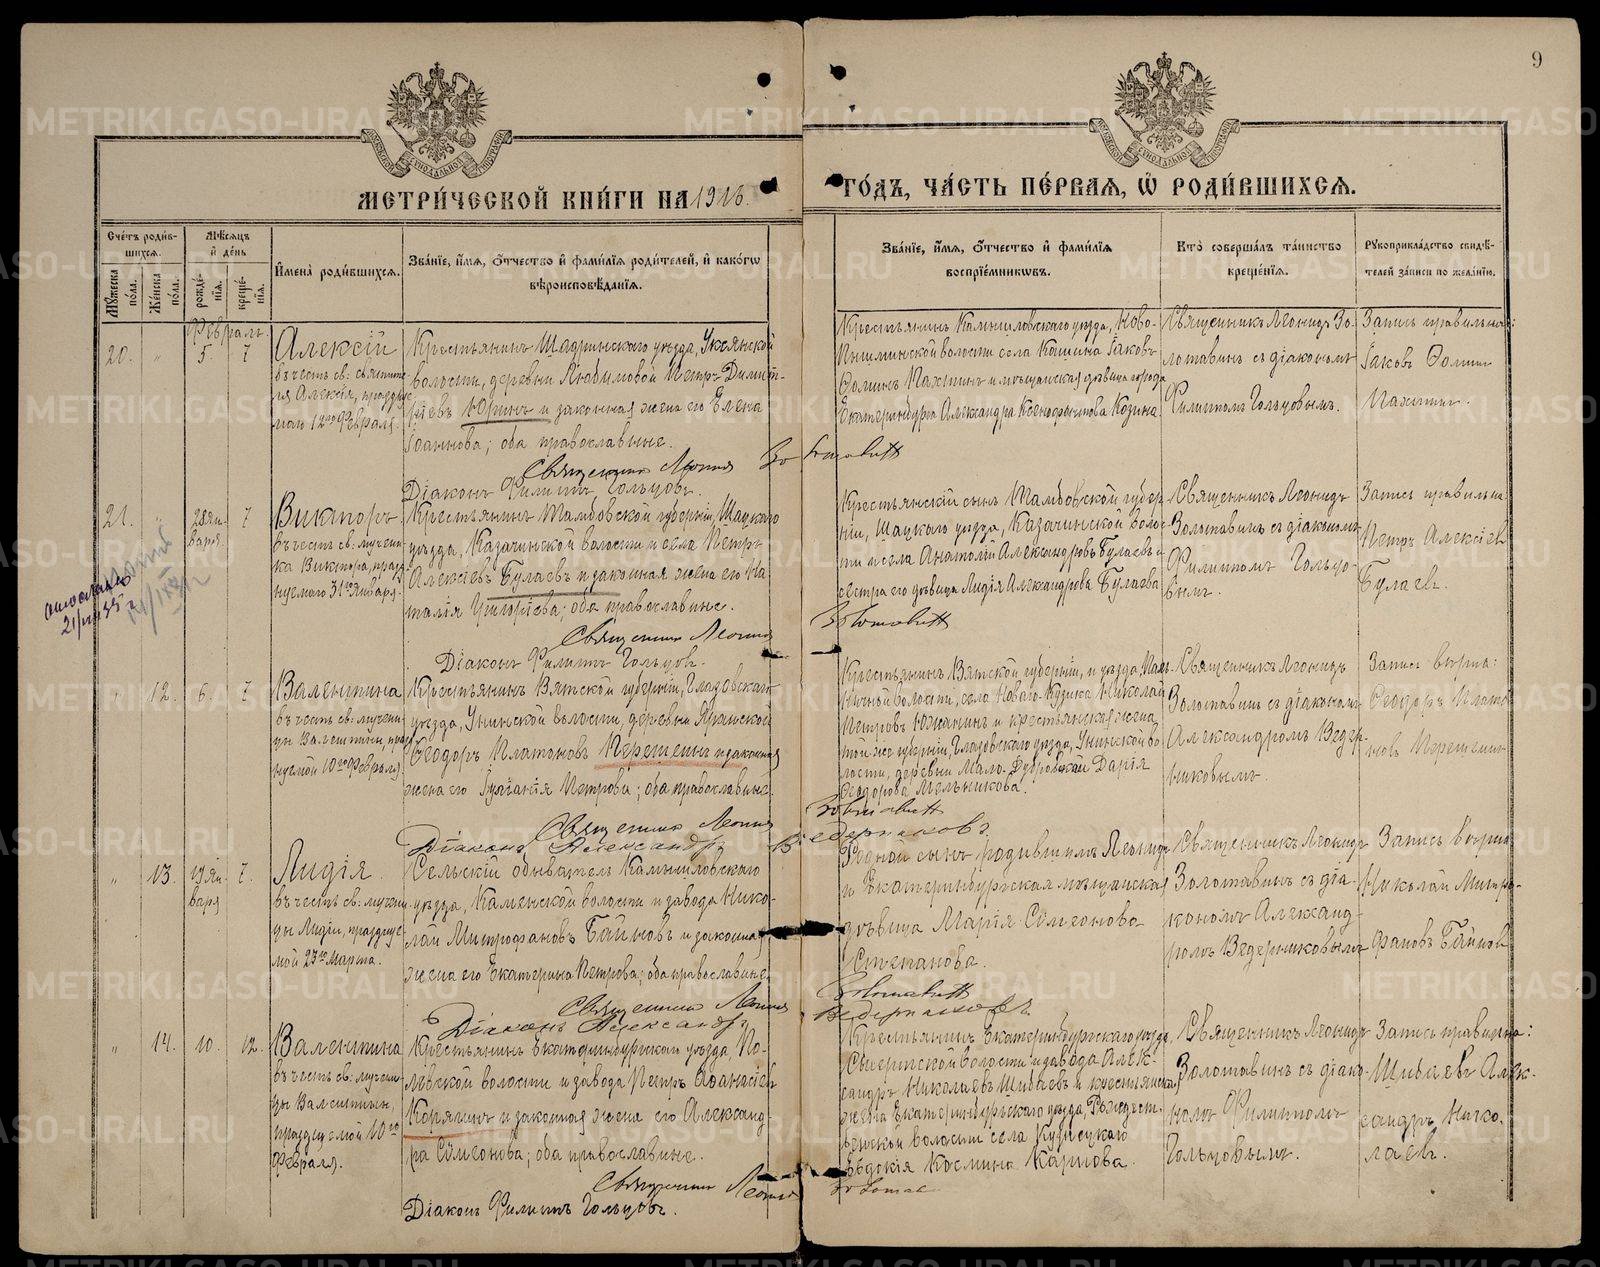 9
МЕТРИ́ЧЕСКОЙ КНИ́ГИ НА 1916.
ГО́ДЪ, ЧА́СТЬ ПЕ́РВАЯ, Ѡ҆ РОДИ́ВШИХСЯ.
Сче́тъ роди́в-
шихся.
Мꙋ́жеска по́ла.
Же́нска по́ла.
Мѣ́сяцъ
и҆ де́нь
рожде́-
нїя.
креще́-
нїя.
И҆мена̀ роди́вшихся.
Зва́нїе, и҆́мя, ѻ҆́тчество и҆ фами́лїя роди́телей, и҆ како́гѡ
вѣроисповѣ́данїя.
Зва́нїе, и҆́мя, ѻ҆́тчество и҆ фами́лїя
воспрїе́мникѡвъ.
Кто̀ соверша́лъ та́инство
креще́нїя.
Рꙋкоприкла́дство свидѣ́-
телей за́писи по жела́нїю.
Февраль.
20.
"
5
7
Алексій
въ честь св. святите-
ля Алексія, праздну-
маго 12го Февраля.
Крестьянинъ Шадринскаго уѣзда, Уксянской
волости, деревни Любимовой Петръ Димит-
ріевъ Юринъ и законная жена его Елена
Іоаннова; оба православные.
Священникъ Леонидъ Золотавинъ
Діаконъ Филиппъ Гольцовъ.
Крестьянинъ Камышловскаго уѣзда, Ново-
Пышминской волости села Кашина Іаковъ
Ѳоминъ Пахтинъ и мѣщанская дѣвица города
Екатеринбурга Александра Ксенофонтова Козина.
Священникъ Леонидъ Зо-
лотавинъ съ діакономъ
Филиппомъ Гольцовымъ.
Запись правильна:
Іаковъ Ѳомин
Пахтин.
21.
"
28 Ян-
варя.
7
Викторъ
въ честь св. мучени-
ка Виктора, празд-
нуемаго 31го Января.
21/VII 35 г.
Крестьянинъ Тамбовской губерніи, Шацкаго
уѣзда, Казачинской волости и села Петръ
Алексіевъ Булаевъ и законная жена его На-
талія Григоріева; оба православные.
Священникъ Леонидъ Золотавинъ
Діаконъ Филиппъ Гольцовъ.
Крестьянскій сынъ Тамбовской губер-
ніи, Шацкаго уѣзда, Казачинской волос-
ти и села Анатолій Александровъ Булаевъ и
сестра его дѣвица Лидія Александрова Булаева
Священникъ Леонидъ
Золотавинъ съ діакономъ
Филиппомъ Гольцо-
вымъ.
Запись правильна
Петръ Алексіев
Булаев.
"
12.
6.
7
Валентина
въ честь св. мучени-
цы Валентины, празд-
нуемой 10го Февраля.
Крестьянинъ Вятской губерніи, Глазовскаго
уѣзда, Унинской волости,
Ѳеодоръ Платоновъ Перетегинъ и законная
жена его Петрова; оба православные.
Священникъ Леонидъ Золотавинъ
Діаконъ Александръ Ведерниковъ.
Крестьянинъ Вятской губерніи, и уѣзда,
волости, села Николай
Петровъ Южанинъ и крестьянская жена
той же губерніи, Глазовскаго уѣзда, Унинской во-
лости, деревни Мало-Дубровской Дарія
Ѳеодорова Мельникова.
Священникъ Леонидъ
Золотавинъ съ діакономъ
Александромъ Ведер-
никовымъ.
Запись вѣрна:
Ѳеодоръ Плато-
новъ Перетегин
"
13.
19 Ян-
варя
7.
Лидія.
въ честь св. мучени-
цы Лидіи, празднуе-
мой 23го Марта.
Сельскій обыватель Камышловскаго
уѣзда, Каменской волости и завода Нико-
лай Митрофановъ Байновъ и законная
жена его Екатерина Петрова; оба православные.
Священникъ Леонидъ Золотавинъ
Діаконъ Александръ Ведерниковъ
Родной сынъ родившихъ Леонидъ
и Екатеринбургская мѣщанская
дѣвица Марія Сѵмеонова
Степанова.
Священникъ Леонидъ
Золотавинъ съ діа-
кономъ Александ-
ромъ Ведерниковымъ
Запись вѣрна
Николай Митро-
фановъ Байнов
"
14.
10.
12.
Валентина
въ честь св. мучени-
цы Валентины,
празднуемой 10го
Февраля.
Крестьянинъ Екатеринбургскаго уѣзда, По-
левской волости и завода Петръ Аѳанасіевъ
Корягинъ и законная жена его Александ-
ра Сѵмеонова; оба православные.
Священникъ Леонидъ Золотав
Діаконъ Филиппъ Гольцовъ.
Крестьянинъ Екатеринбургскаго уѣзда,
Сысертской волости и завода Алек-
сандръ Николаевъ Шибаевъ и крестьянская
жена Екатеринбургскаго уѣзда, Рождест-
венской волости села Кузнецкаго
Евдокія Космина Карпова.
Священникъ Леонидъ
Золотавинъ съ діако-
номъ Филиппомъ
Гольцовымъ.
Запись правильна:
Шибаевъ Алек-
сандръ Нико-
лаев.